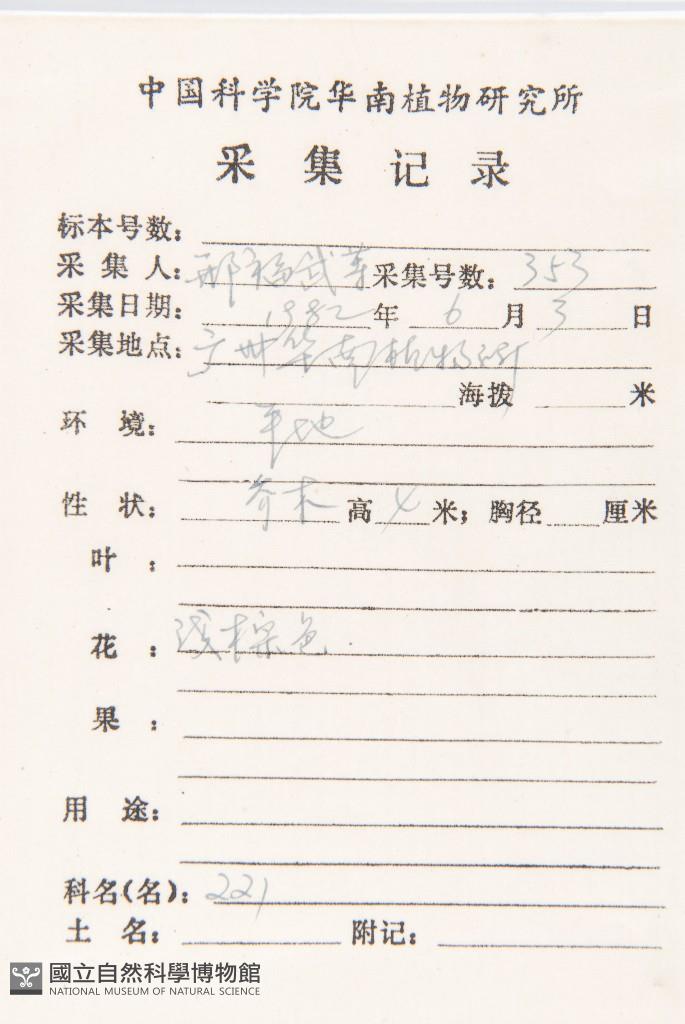 中国科学院华南植物研究所
采集记录
标本号数:
采集人: 邢福武等 采集号数: 353
采集日期: 1982 年 6 月 3 日
采集地点: 广州华南植物所
海拨 米
环境: 平地
性状: 乔木 高 4 米; 胸径 厘米
叶:
花: 浅棕色.
果:
用途:
科名(名): 221
土名: 附记:
國立自然科學博物館
NATIONAL MUSEUM OF NATURAL SCIENCE